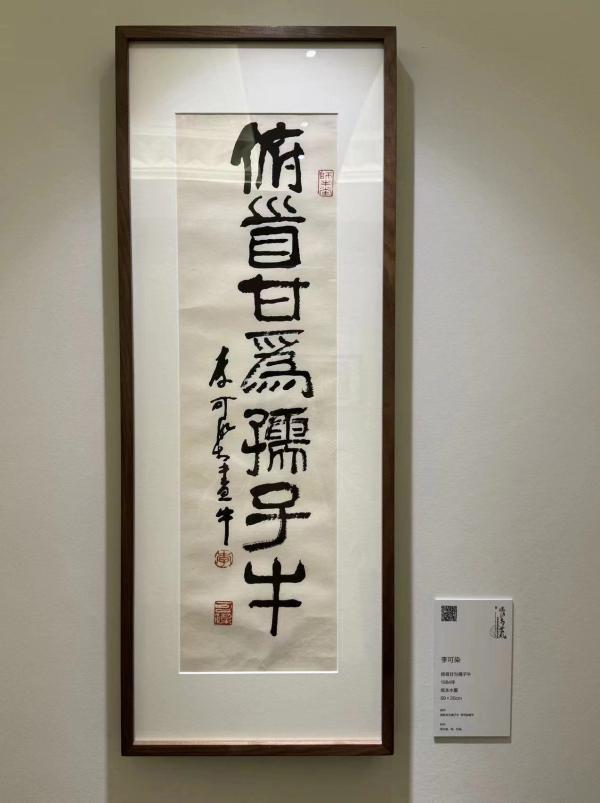 俯首甘爲孺子牛
李可染畫牛
師牛堂
李
可染
李可染
俯首甘为孺子牛
纸本水墨